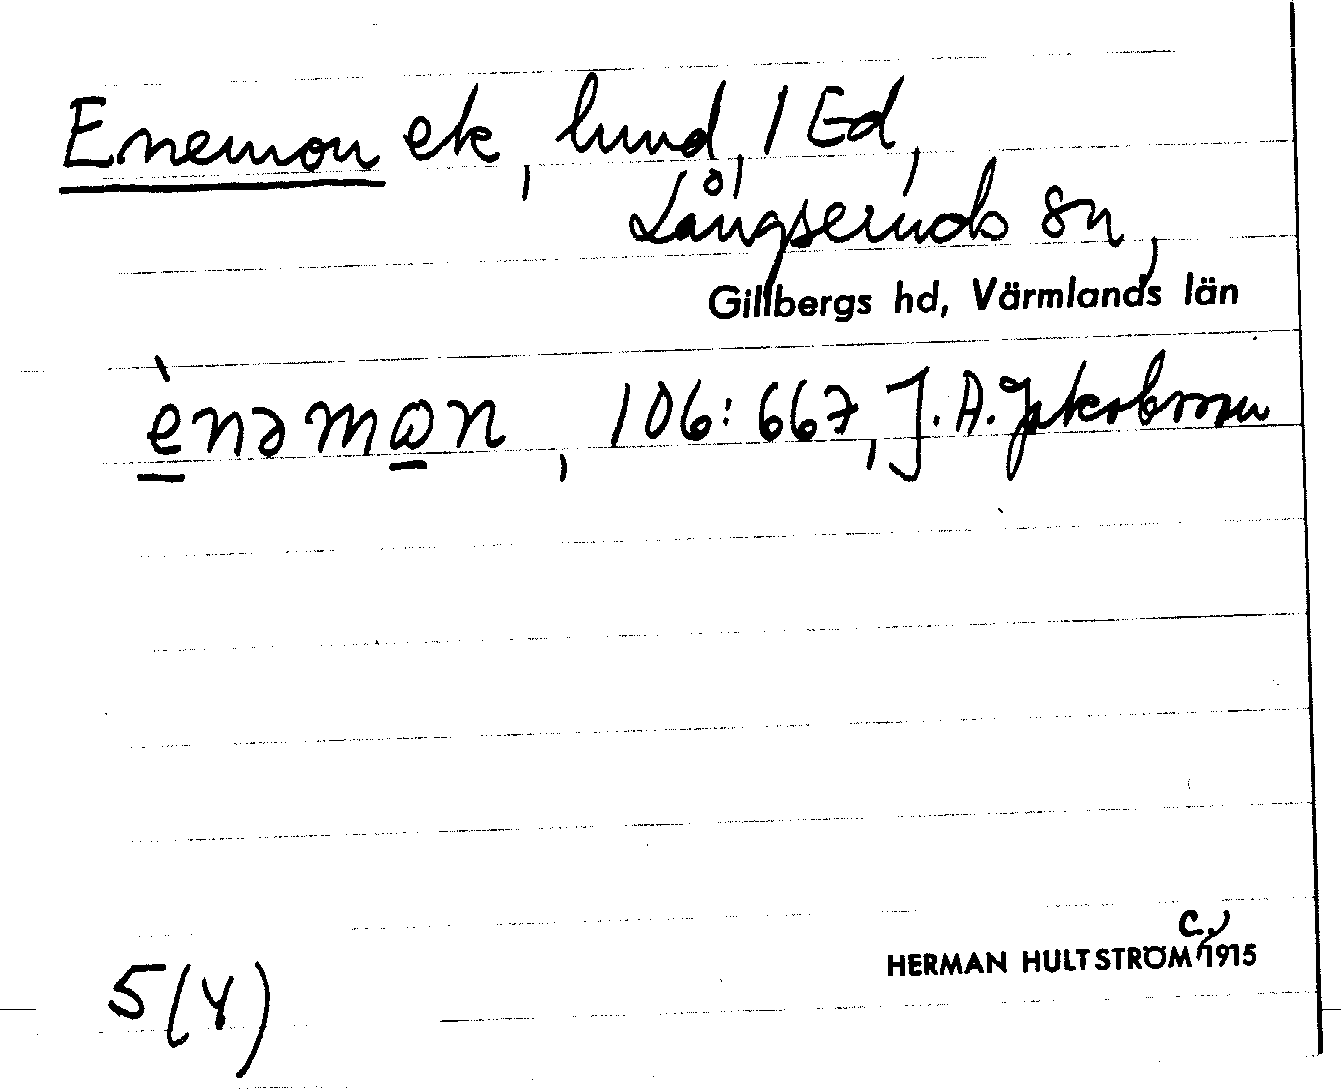 Enemon ek, lund, 1 Ed,
Långseruds sn,
Gillbergs hd, Värmlands län
ènəmɷn, 106:667, J.A. Jakobsson
c.
HERMAN HULTSTRÖM, 1915
5(Y)